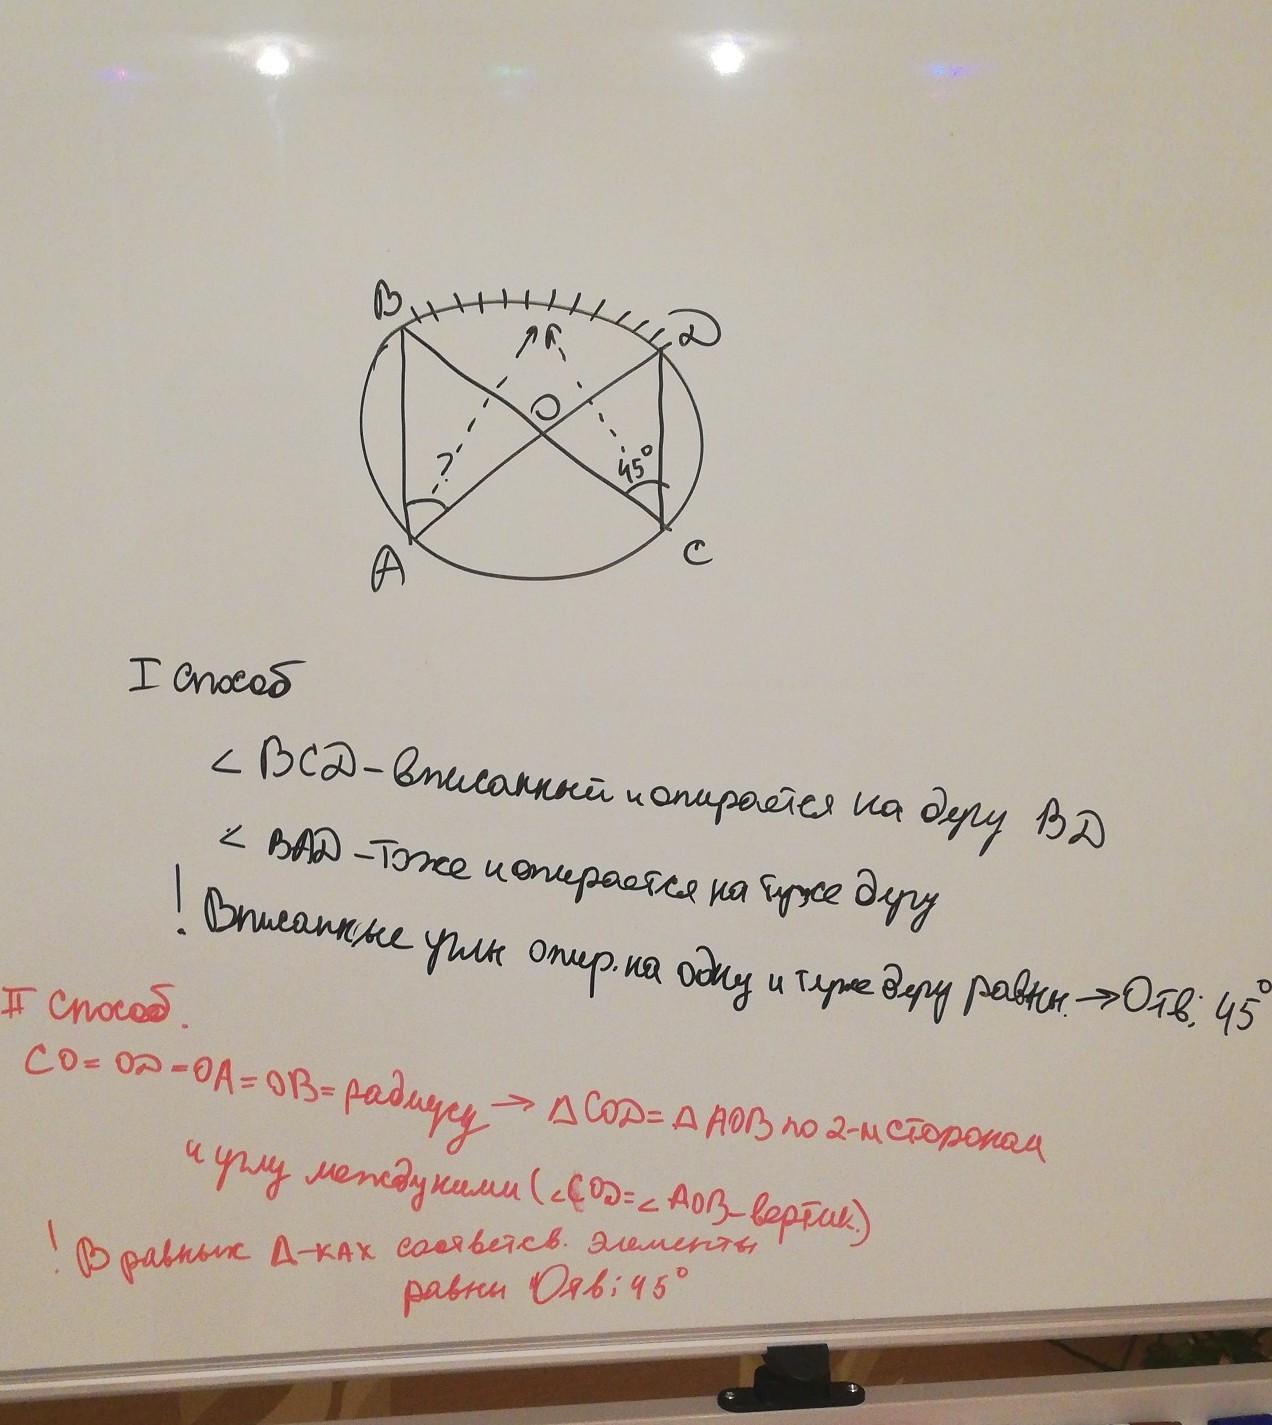 B
D
O
?
45°
A
C
I способ
< BCD - вписанный и опирается на дугу BD
< BAD - тоже и опирается на туже дугу
! Вписанные углы опир. на одну и туже дугу равны. → Отв: 45°
II способ.
CO = OD = OA = OB = радиусу → Δ COD = Δ AOB по 2-м сторонам
и углу между ними (<COD = < AOB - вертик.)
! В равных Δ-ках соответсв. элементы
равны Отв: 45°